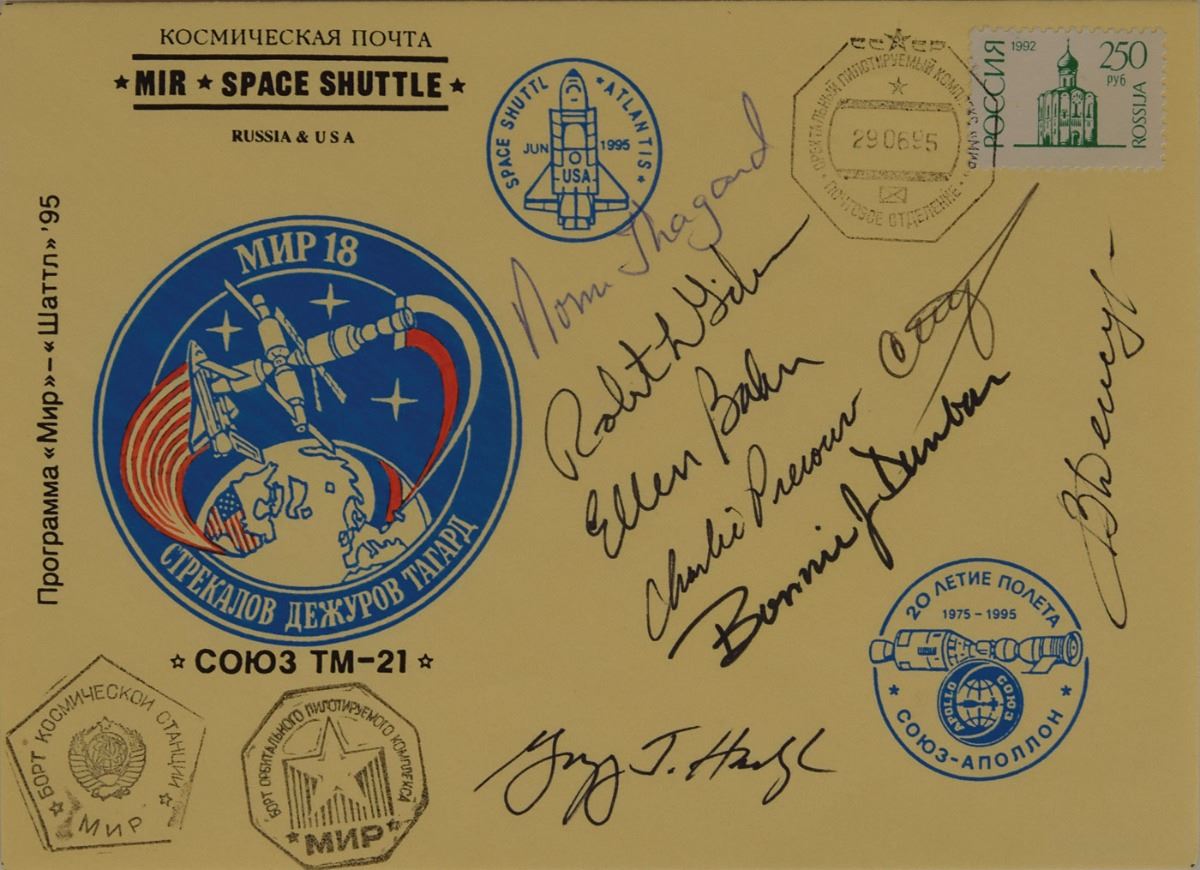 КОСМИЧЕСКАЯ ПОЧТА
MIR ★ SPACE SHUTTLE
RUSSIA & USA
SPACE SHUTTL ATLANTIS
JUN 1995
USA
СССР
ОРБИТАЛЬНЫЙ ПИЛОТИРУЕМЫЙ КОМПЛЕКС «МИР»
290695
ПОЧТОВОЕ ОТДЕЛЕНИЕ
РОССИЯ
1992
250
РУБ
ROSSIJA
Программа «Мир»–«Шаттл» '95
МИР 18
СТРЕКАЛОВ ДЕЖУРОВ ТАГАРД
☆ СОЮЗ ТМ–21 ☆
Norm Thagard
Robert L Gibson
Ellen Baker
Charlie Precourt
Bonnie J. Dunbar
20 ЛЕТИЕ ПОЛЕТА
1975–1995
APOLLO СОЮЗ
СОЮЗ-АПОЛЛОН
БОРТ КОСМИЧЕСКОЙ СТАНЦИИ
МИР
БОРТ ОРБИТАЛЬНОГО ПИЛОТИРУЕМОГО КОМПЛЕКСА
МИР